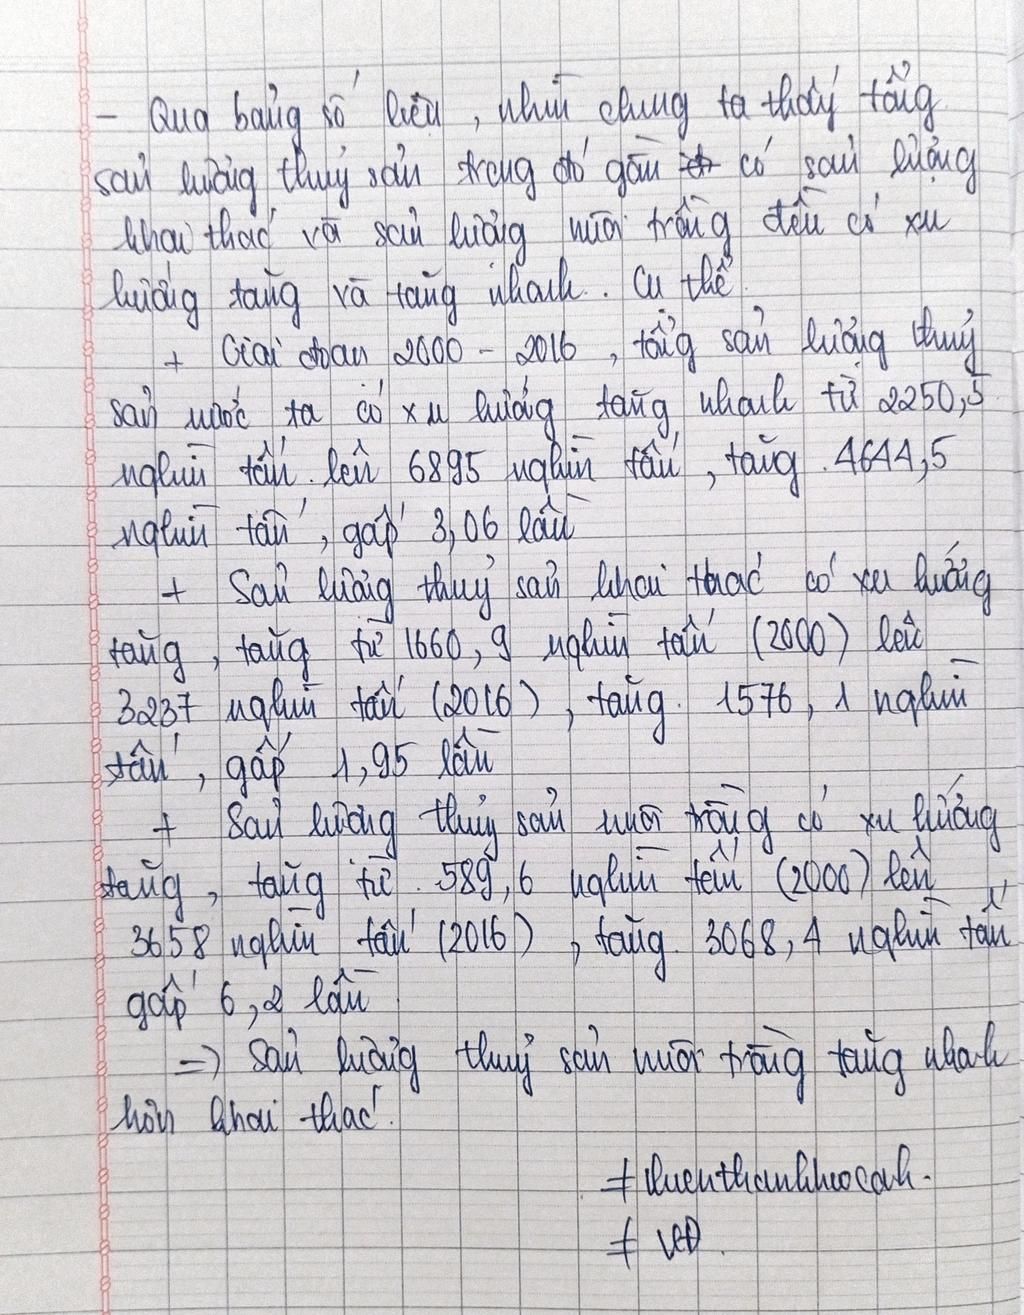 - Qua bảng số liệu, nhìn chung ta thấy tổng
sản lượng thuỷ sản trong đó gồm có sản lượng
khai thác và sản lượng nuôi trồng đều có xu
hướng tăng và tăng nhanh. Cụ thể
+ Giai đoạn 2000 - 2016, tổng sản lượng thuỷ
sản nước ta có xu hướng tăng nhanh từ 2250,5
nghìn tấn lên 6895 nghìn tấn, tăng 4644,5
nghìn tấn, gấp 3,06 lần
+ Sản lượng thuỷ sản khai thác có xu hướng
tăng, tăng từ 1660,9 nghìn tấn (2000) lên
3237 nghìn tấn (2016), tăng 1576,1 nghìn
tấn, gấp 1,95 lần
+ Sản lượng thuỷ sản nuôi trồng có xu hướng
tăng, tăng từ 589,6 nghìn tấn (2000) lên
3658 nghìn tấn (2016), tăng 3068,4 nghìn tấn
gấp 6,2 lần
=> Sản lượng thuỷ sản nuôi trồng tăng nhanh
hơn khai thác.